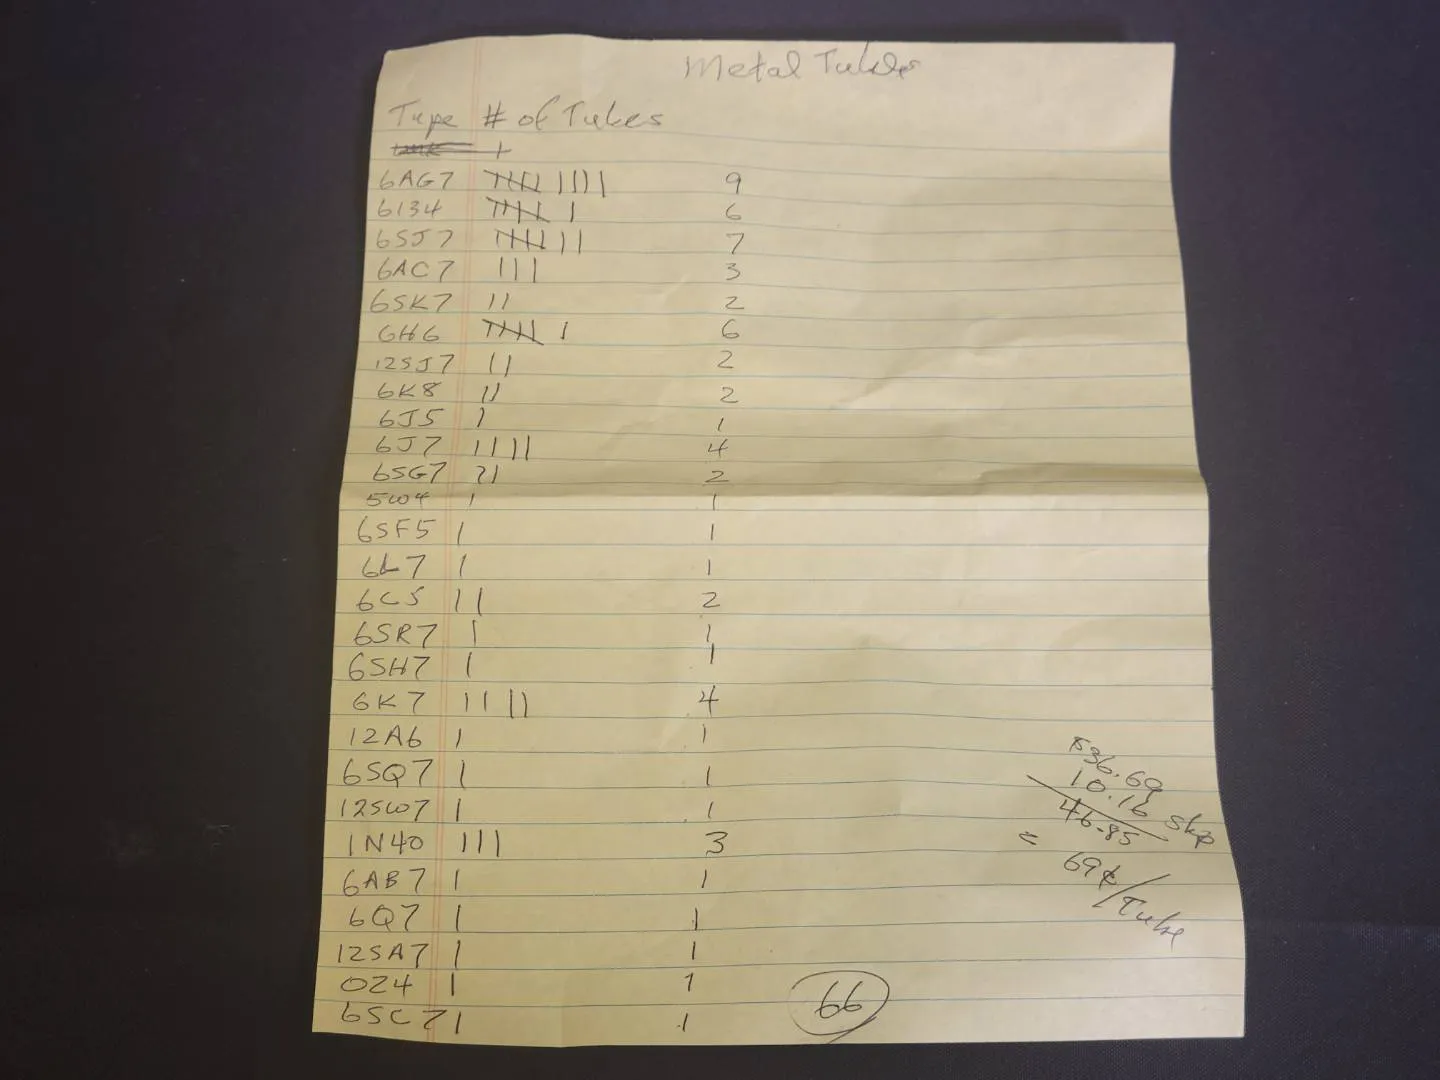 Metal Tubes
Type # of Tubes
6AG7 9
6134 6
6SJ7 7
6AC7 3
6SK7 2
6H6 6
12SJ7 2
6K8 2
6J5 1
6J7 4
6SG7 2
5W4 1
6SF5 1
6L7 1
6C5 2
6SR7 1
6SH7 1
6K7 4
12A6 1
6SQ7 1
12SW7 1
1N40 3
6AB7 1
6Q7 1
12SA7 1
OZ4 1
6SC7 1
66
$36.69
10.16 shp
46.85
= 69¢/Tube